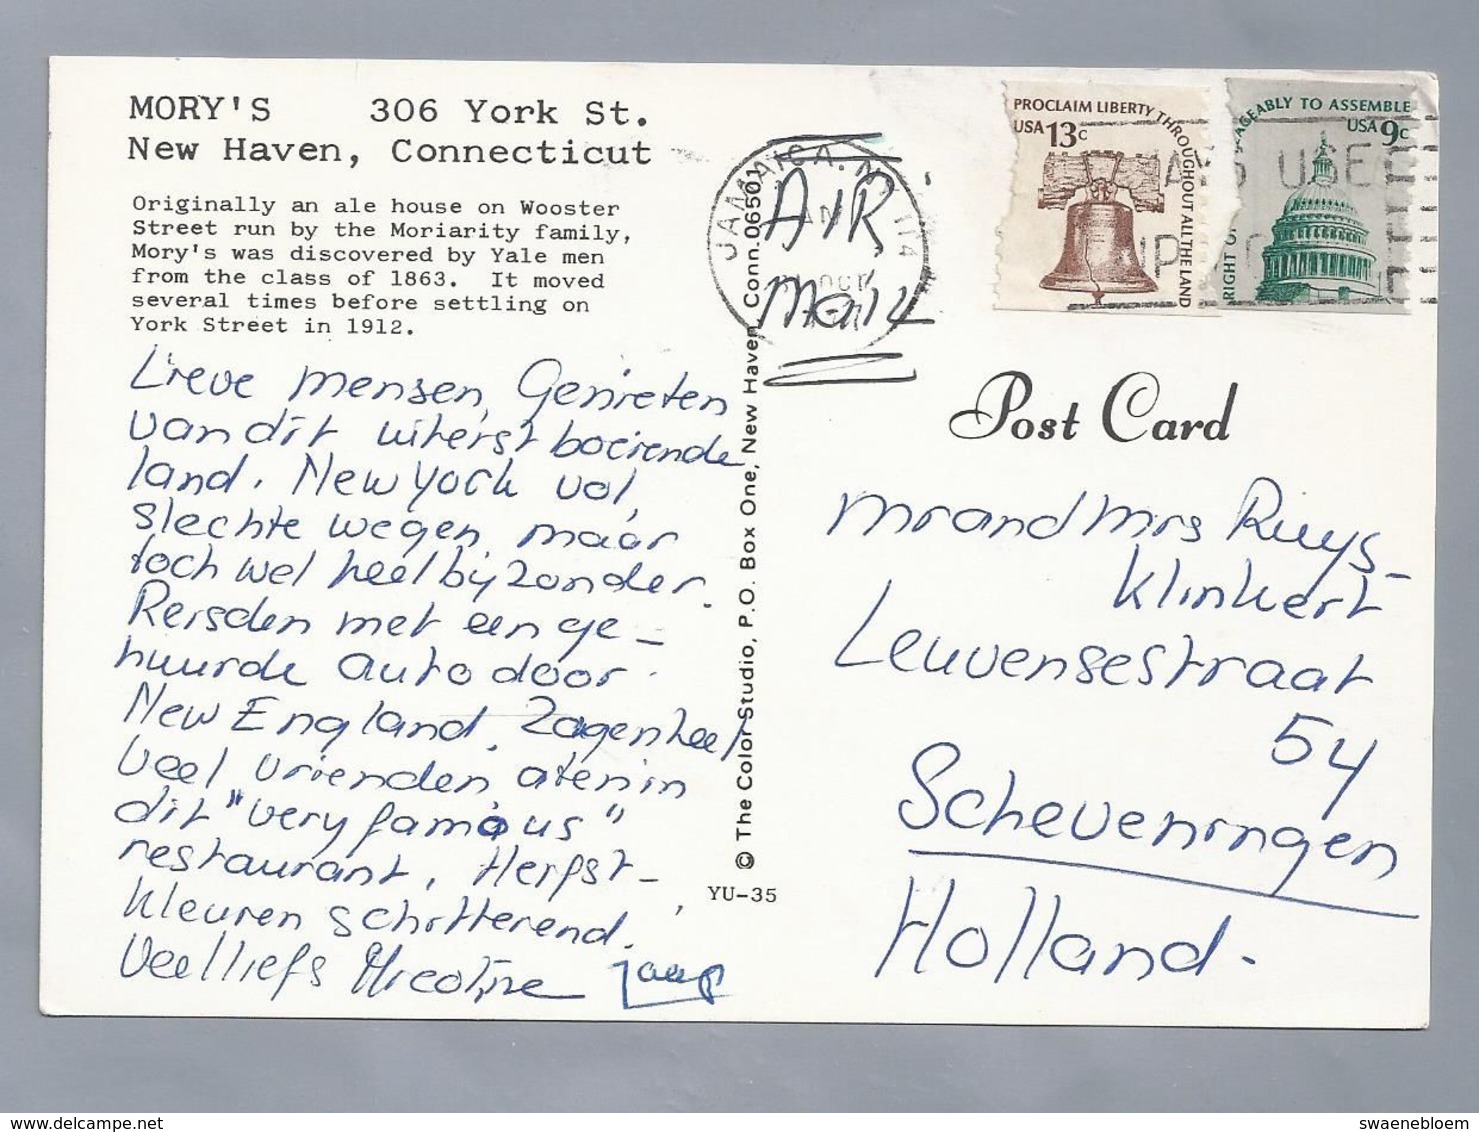 MORY'S 306 York St.
New Haven, Connecticut
Originally an ale house on Wooster
Street run by the Moriarity family,
Mory's was discovered by Yale men
from the class of 1863. It moved
several times before settling on
York Street in 1912.
Lieve mensen, Genieten
van dit uiterst boeiende
land. New York vol,
slechte wegen, maar
toch wel heel byzonder.
Reisden met een ge-
huurde auto door
New England, Zagen heel
veel vrienden, aten in
dit "very famous"
restaurant, Herfst-
kleuren schitterend.
Veel liefs Nicoline Jaap
© The Color Studio, P.O. Box One, New Haven, Conn. 06501
YU-35
JAMAICA, NY 114
OCT
AIR
Mail
PROCLAIM LIBERTY THROUGHOUT ALL THE LAND
USA 13c
RIGHT
TO ASSEMBLE
USA 9c
USE
Post Card
Mr and Mrs Ruys-
Klinkert
Leuvensestraat
54
Scheveningen
Holland.
delcampe.net
swaenebloem